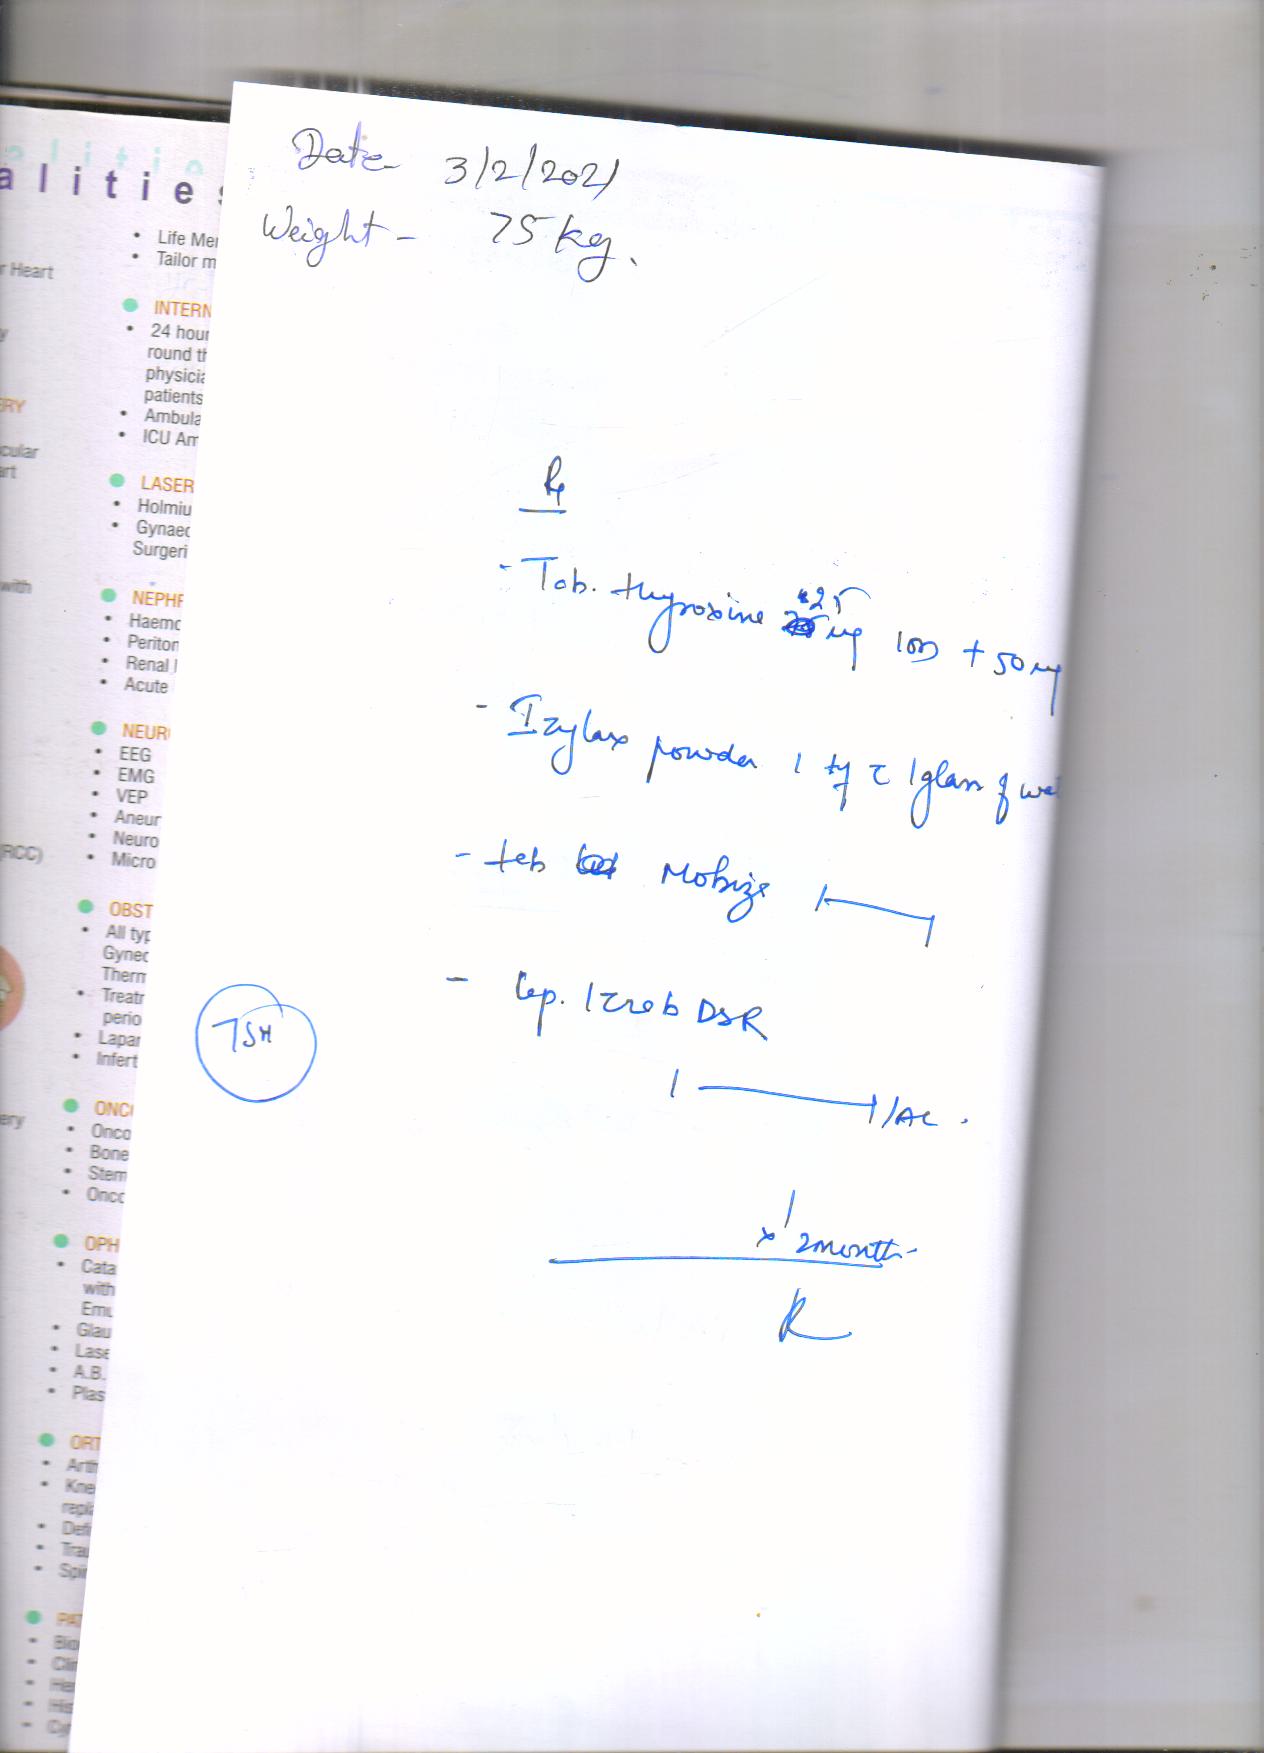 alities
Life Mer
Tailor m
r Heart
INTERN
24 hour
round th
physicia
patients
Ambula
ICU Am
ERY
cular
art
LASER
Holmiu
Gynaec
Surgeri
with
NEPHR
Haemo
Periton
Renal
Acute
NEUR
EEG
EMG
VEP
Aneur
Neuro
Micro
(RCC)
OBST
All typ
Gynec
Therm
Treatr
perio
Lapar
Infert
ery
ONC
Onco
Bone
Stem
Onco
OPH
Cata
with
Emu
Glau
Lase
A.B.
Plas
ORT
Arth
Knee
repla
Defo
Trau
Spi
PAT
Bio
Clin
His
Date- 3/2/2021
Weight - 75 kg.
Rx
- Tab. thyroxine 125 ug 100 + 50 ug
- Izylax powder 1 c 1 glass of wat
- tab Mobize 1
- Cap. Izrab DSR
1 1/AC.
TSH
x 2 month-